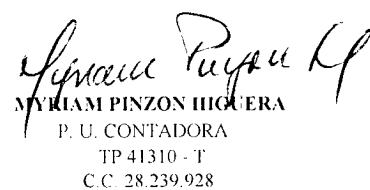 Myriam Pinzon H
MYRIAM PINZON HIGUERA
P. U. CONTADORA
TP 41310 - T
C.C. 28.239.928